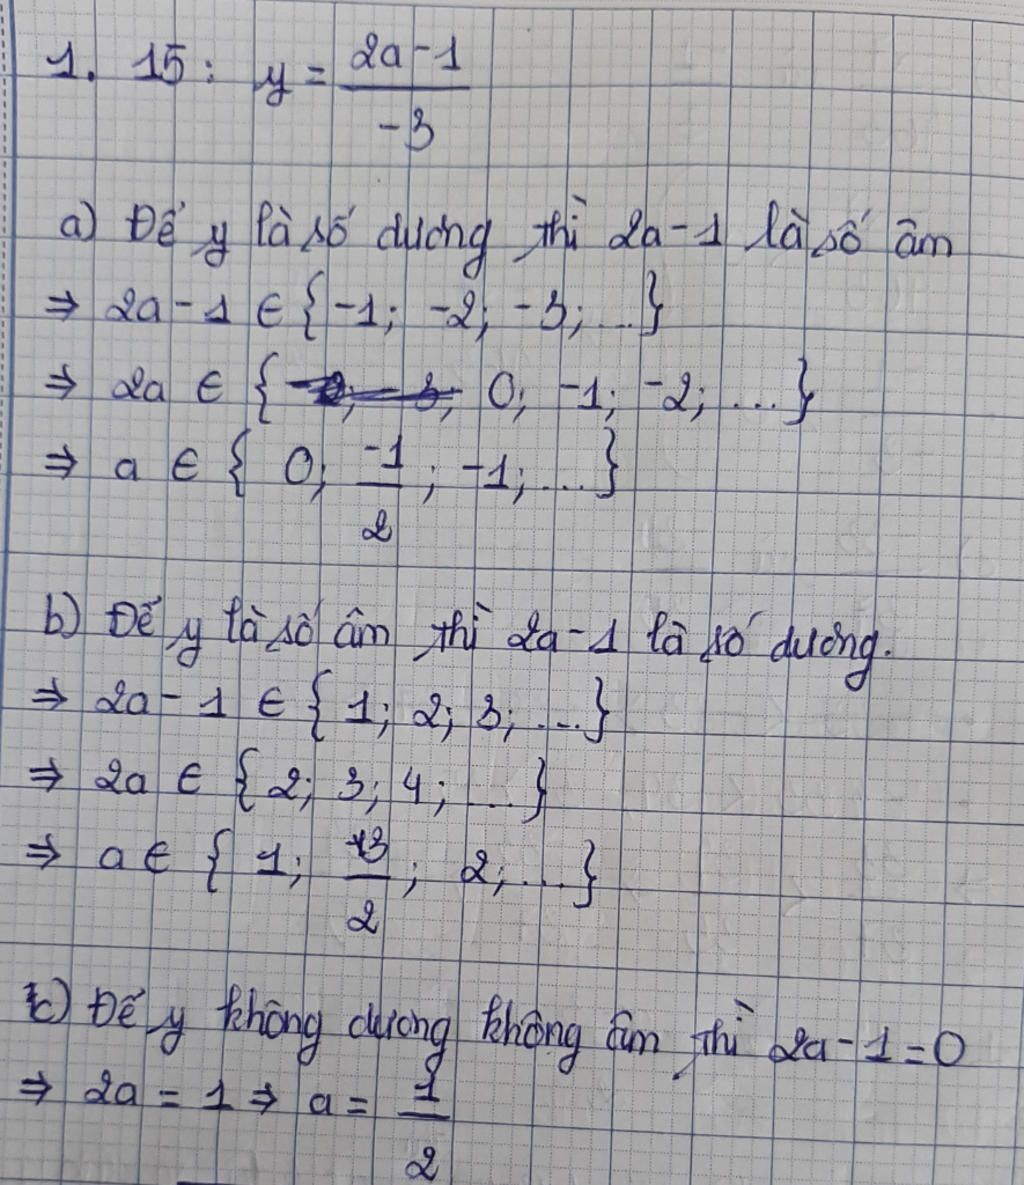 1. 15: y = \frac{2a-1}{-3}
a) Để y là số dương thì 2a-1 là số âm
⇒ 2a-1 ∈ {-1; -2; -3; ...}
⇒ 2a ∈ { 0; -1; -2; ...}
⇒ a ∈ { 0; \frac{-1}{2}; -1; ...}
b) Để y là số âm thì 2a-1 là số dương.
⇒ 2a-1 ∈ { 1; 2; 3; ...}
⇒ 2a ∈ {2; 3; 4; ...}
⇒ a ∈ { 1; \frac{3}{2}; 2; ...}
c) Để y không dương không âm thì 2a-1=0
⇒ 2a = 1 ⇒ a = \frac{1}{2}